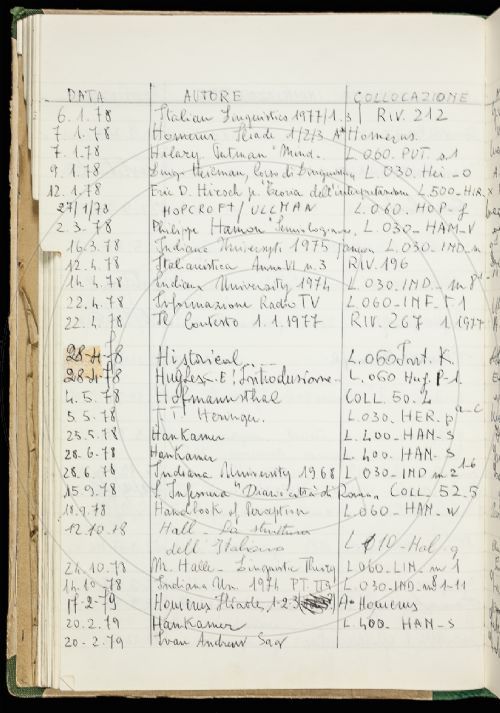 DATA AUTORE COLLOCAZIONE
6.1.78 Italian Linguistics 1977/1.3 RIV. 212
7.1.78 Homerus Iliade 1/2/3 A* Homerus.
7.1.78 Hilary Putman "Mind. L 060. PUT. s.1
9.1.78 Luigi Heilman, Corso di Linguistica L 030. Hei - 0
12.1.78 Eric D. Hirsch jr. Teoria dell'interpretazione L 500-HIR.
27/1/78 HOPCROFT/ULLMAN L.060. HOP-f
2.3.78 Philippe Hamon L. 030-HAM-V
16.3.78 Indiana University 1975 L. 030-IND.
12.4.78 Italianistica Anno VI n.3 RIV 196
14.4.78 Indiana University 1974 L. 030-IND.
22.4.78 Informazione Radio TV L 060-INF.
22.4.78 Il Contesto 1.1.1977 RIV. 267 1.1977
28-4-78 Historical L. 060 K.
28-4-78 Hughes-E! Introduzione L. 060 Hug. P-1
4.5.78 Hofmannsthal COLL. 50.
5.5.78 Heringer. L. 030. HER. p a-c
23.5.78 HanKamer L. 400-HAN-S
28.6.78 HanKamer L. 400. HAN-S
28.6.78 Indiana University 1968 L 030-IND m 2 1-6
15.9.78 COLL. 52.5
18.9.78 Handbook of Perception L 060-HAN-
12.10.78 Hall - La struttura
dell'Italiano Hal.
24.10.78 M. Halle - Linguistic Theory L 060-LIN.
14.10-78 Indiana Un. 1974 PT. III L. 030-IND. 1-11
17-2-79 Homerus Iliade, 1-2-3 A* Homerus
20.2.79 HanKamer L. 400. HAN-S
20-2.79 Ivan Andrew Sag